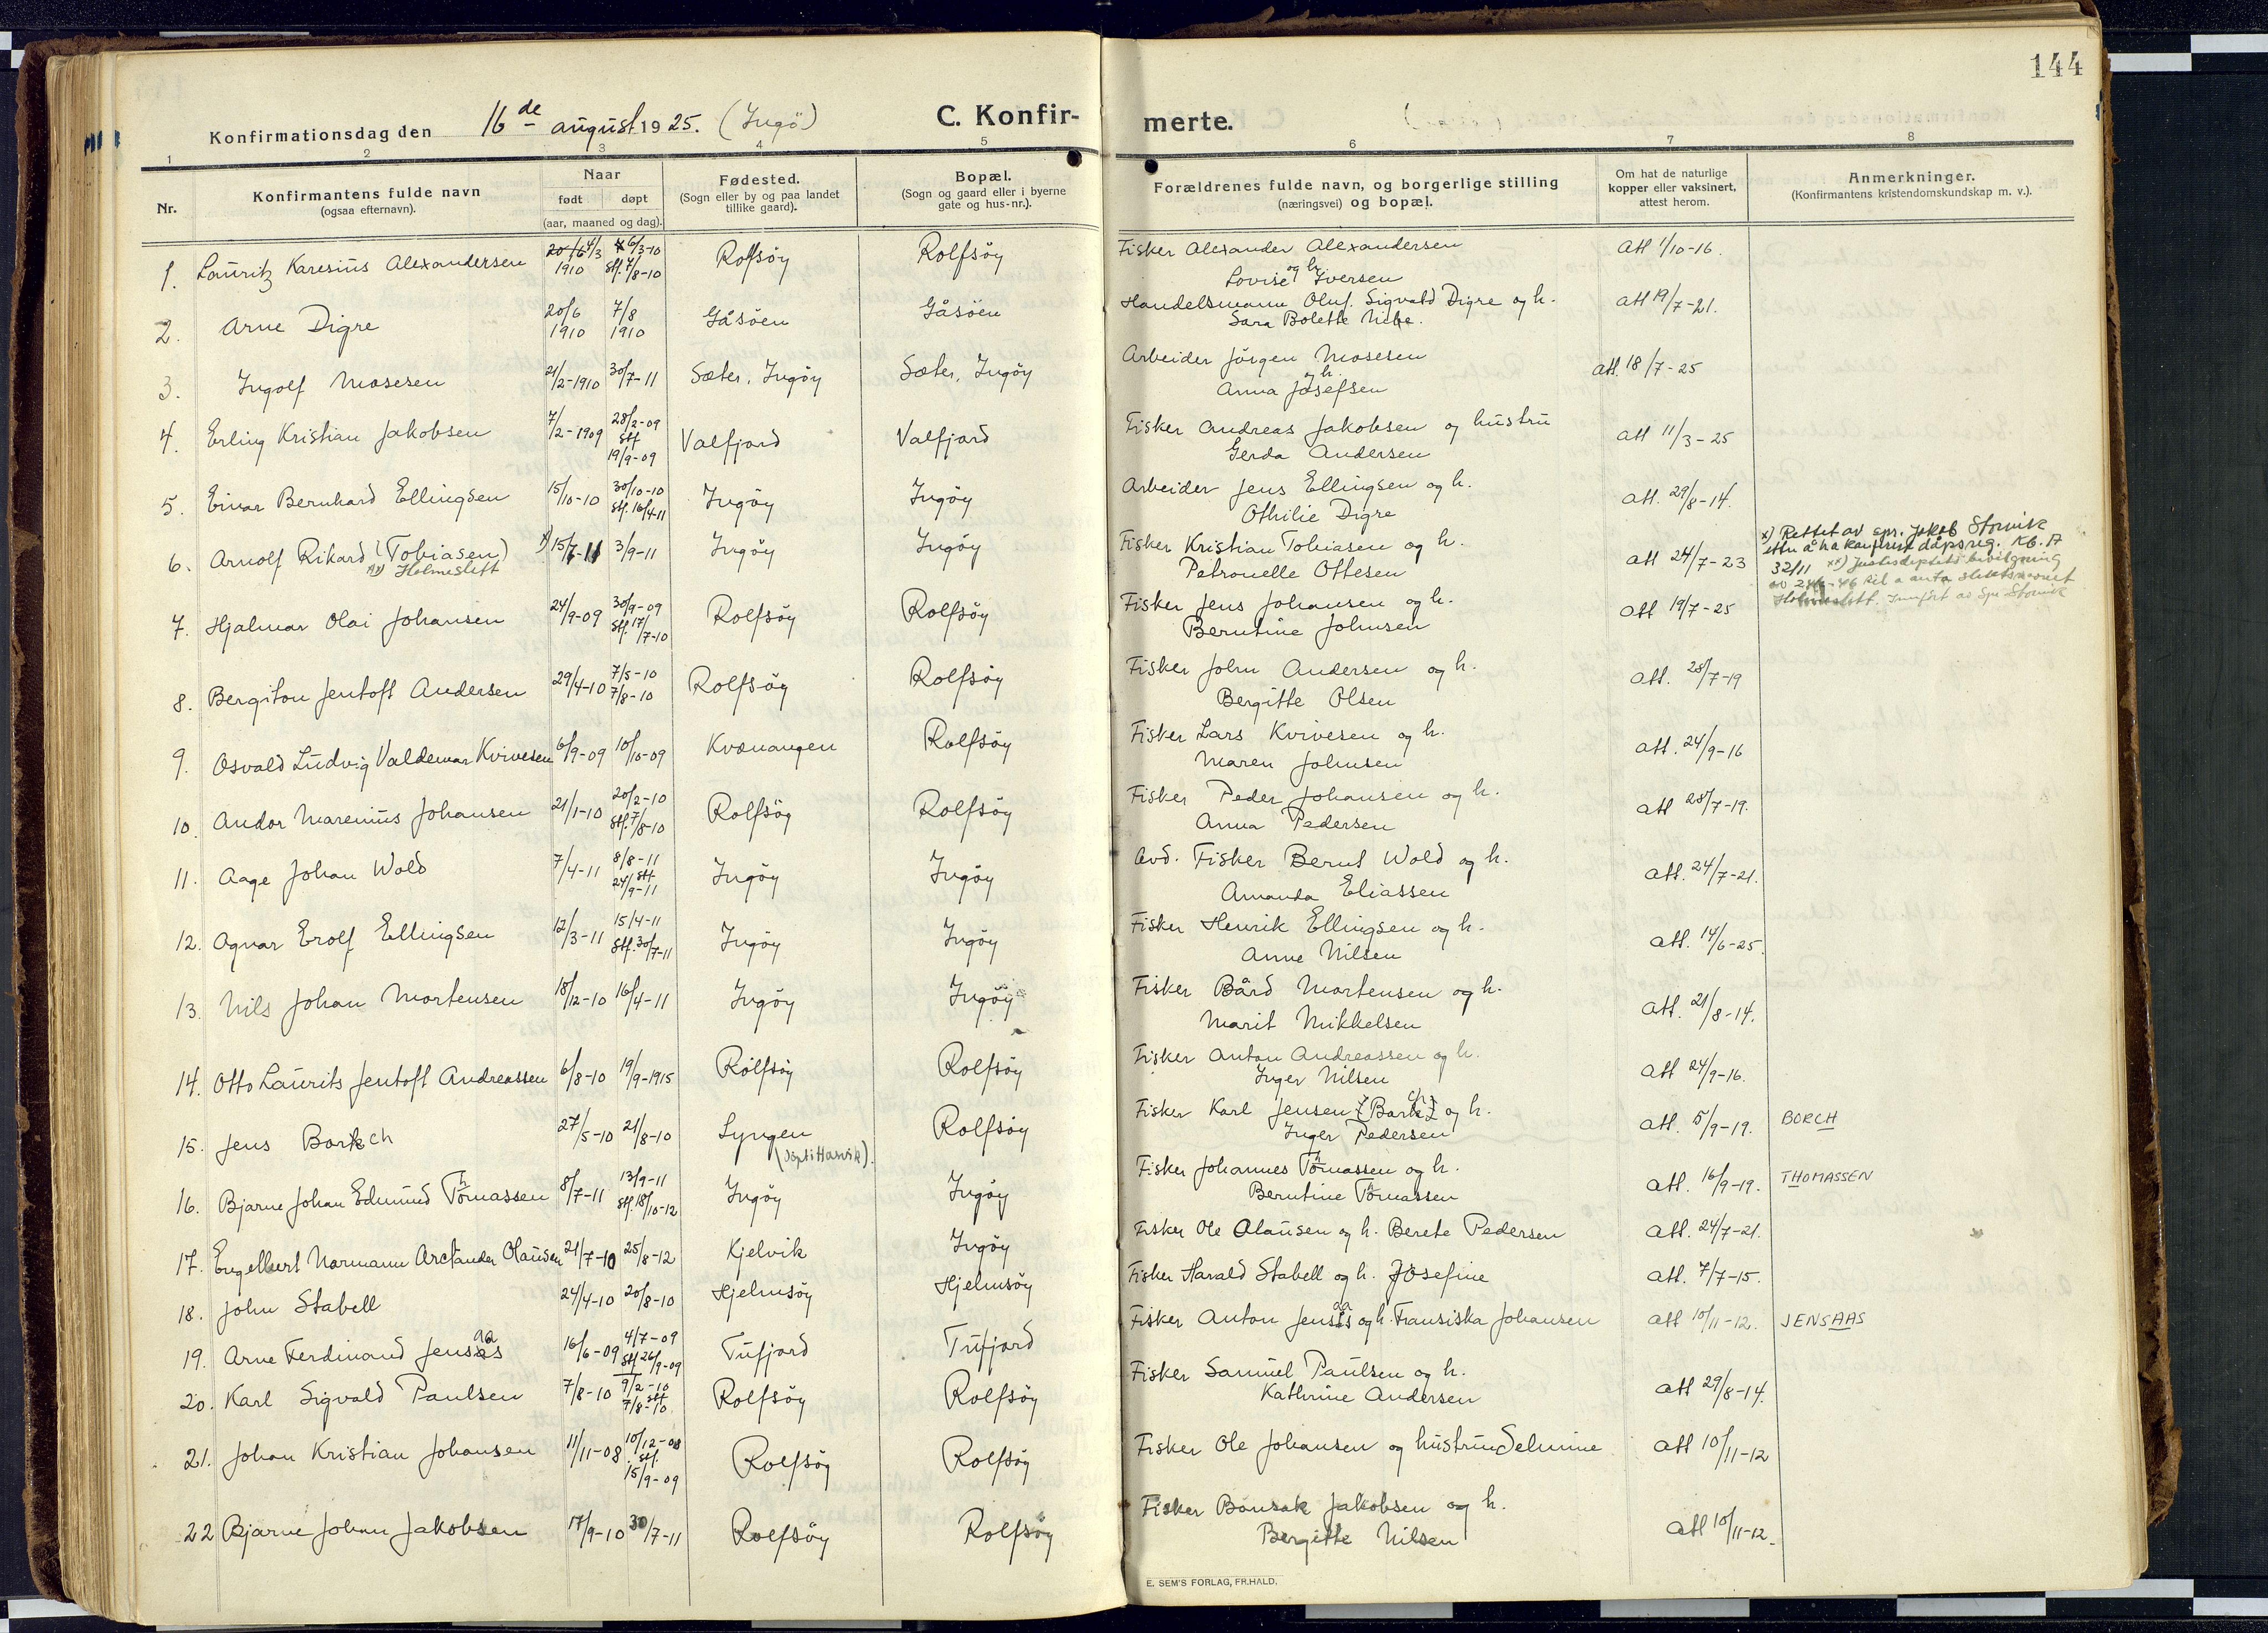 144
Konfirmationsdag den 16de august 1925. (Ingö)
C. Konfirmerte.
1 2 3 4 5 6 7 8
Nr.
Konfirmantens fulde navn
(ogsaa efternavn).
Naar
født døpt
(aar, maaned og dag).
Fødested.
(Sogn eller by og paa landet
tillike gaard).
Bopæl.
(Sogn og gaard eller i byerne
gate og hus-nr.).
Forældrenes fulde navn, og borgerlige stilling
(næringsvei) og bopæl.
Om hat de naturlige
kopper eller vaksinert,
attest herom.
Anmerkninger.
(Konfirmantens kristendomskundskap m. v.).
1. Lauritz Karesius Alexandersen 20/6 4/3 1910 6/3-10 stf. 7/8-10 Rolfsöy Rolfsöy Fisker Alexander Alexandersen att 1/10-16.
og h. Lovise Iversen
2. Arne Digre 20/6 1910 7/8 1910 Gåsöen Gåsöen Handelsmann Oluf Sigvald Digre og h. att 19/7-21.
Sara Bolette
3. Ingolf Mosesen 21/2-1910 30/7-11 Sæter, Ingöy Sæter, Ingöy Arbeider Jörgen Mosesen att. 18/7-25
og h. Anna Josefsen
4. Erling Kristian Jakobsen 7/2-1909 28/2-09 stf 19/9-09 Valfjord Valfjord Fisker Andreas Jakobsen og hustru att 11/3-25
Gerda Andersen
5. Einar Bernhard Ellingsen 15/10-10 30/10-10 stf. 16/4-11 Ingöy Ingöy Arbeider Jens Ellingsen og h. att. 29/8-14.
Othilie Digre
6. Arnolf Rikard (Tobiasen) xx) Holmeslett x) 15/7-11 3/9-11 Ingöy Ingöy Fisker Kristian Tobiasen og h. att 24/7-23
Petronelle Ottesen
x) Rettet av spr. Jakob Storvik
etter å ha konferert dåpsreg. Kb. 17
32/11 xx) Justisdeptets bevilgning
7. Hjalmar Olai Johansen 24/9-09 30/9-09 stf. 17/7-10 Rolfsöy Rolfsöy Fisker Jens Johansen og h. att 19/7-25
Berntine Johnsen
8. Bergiton Jentoft Andersen 29/4-10 7/5-10 7/8-10 Rolfsöy Rolfsöy Fisker John Andersen og h. att. 28/7-19
Bergitte Olsen
9. Osvald Ludvig Valdemar Kvivesen 6/9-09 10/10-09 Kvænangen Rolfsöy Fisker Lars Kvivesen og h. att. 24/9-16
Maren Johnsen
10. Andor Marenius Johansen 21/1-10 20/2-10 stf. 7/8-10 Rolfsöy Rolfsöy Fisker Peder Johansen og h. att 28/7-19.
Anna Pedersen
11. Aage Johan Wold 7/4-11 8/8-11 stf 24/9-11 Ingöy Ingöy Avd. Fisker Bernt Wold og h. att. 24/7-21.
Amanda Eliassen
12. Agnar Erolf Ellingsen 12/3-11 15/4-11 stf. 30/7-11 Ingöy Ingöy Fisker Henrik Ellingsen og h. att. 14/6-25.
Anne Nilsen
13. Nils Johan Mortensen 18/12-10 16/4-11 Ingöy Ingöy Fisker Bård Mortensen og h. att. 21/8-14.
Marit Mikkelsen
14. Otto Laurits Jentoft Andreassen 6/8-10 19/9-1915 Rolfsöy Rolfsöy Fisker Anton Andreassen og h. att 24/9-16.
Inger Nilsen
15. Jens Borkch 27/5-10 21/8-10 Lyngen (döpt i Hasvik). Rolfsöy Fisker Karl Jensen [Bork ch] og h. att. 5/9-19. BORCH
Inger Pedersen
16. Bjarne Johan Edmund Thomassen 8/7-11 13/9-11 stf. 18/10-12 Ingöy Ingöy Fisker Johannes Thomassen og h. att. 16/9-19. THOMASSEN
Berntine Thomassen
17. Engelbert Normann Arctander Olausen 21/7-10 25/8-12 Kjelvik Ingöy Fisker Ole Olausen og h. Berete Pedersen att. 24/7-21.
18. John Stabell 24/4-10 20/8-10 Hjelmsöy Hjelmsöy Fisker Harald Stabell og h. Josefine att. 7/7-15.
19. Arne Ferdinand Jensaas 16/6-09 4/7-09 stf 26/9-09 Tufjord Tufjord Fisker Anton Jensaas og h. Fransiska Johansen att 10/11-12. JENSAAS
20. Karl Sigvald Paulsen 7/8-10 9/2-10 stf 7/8-10 Rolfsöy Rolfsöy Fisker Samuel Paulsen og h. att 29/8-14.
Kathrine Andersen
21. Johan Kristian Johansen 11/11-08 10/12-08 stf. 15/9-09 Rolfsöy Rolfsöy Fisker Ole Johansen og hustru Selmine att 10/11-12
22 Bjarne Johan Jakobsen 17/9-10 30/7-11 Rolfsöy Rolfsöy Fisker Bonsak Jakobsen og h. att 10/11-12.
Bergitte Nilsen
E. SEM'S FORLAG, FR.HALD.